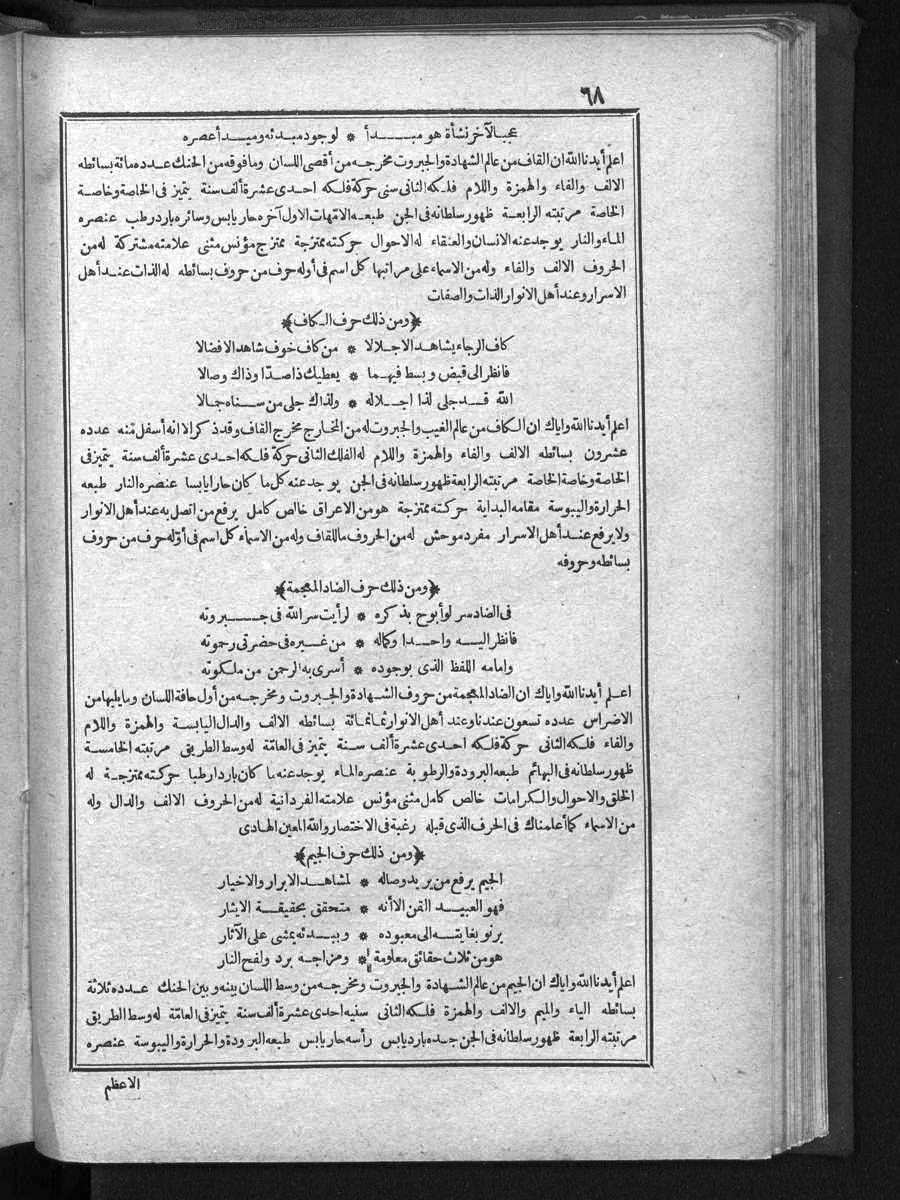 ٦٨
عجبا لآخر نشأة هو مبــدأ * لوجود مبدئه ومبدأ عصره
اعلم أيدنا الله ان القاف من عالم الشهادة والجبروت مخرجه من أقصى اللسان وما فوقه من الحنك عدده مائة بسائطه
الالف والفاء والهمزة واللام فلكه الثانى سنى حركة فلكه احدى عشرة ألف سنة يتميز فى الخاصة وخاصة
الخاصة مرتبته الرابعة ظهور سلطانه فى الجن طبعه الامهات الاول آخره حار يابس وسائره بارد رطب عنصره
الماء والنار يوجد عنه الانسان والعنقاء له الاحوال حركته ممتزجة ممتزج مؤنس مثنى علامته مشتركة له من
الحروف الالف والفاء وله من الاسماء على مراتبها كل اسم فى أوله حرف من حروف بسائطه له الذات عند أهل
الاسرار وعند أهل الانوار الذات والصفات
﴿ومن ذلك حرف الكاف﴾
كاف الرجاء يشاهد الاجلالا * من كاف خوف شاهد الافضالا
فانظر الى قبض وبسط فيهما * يعطيك ذا صدّا وذاك وصالا
الله قد جلى لذا اجلاله * ولذاك جلى من سناه جمالا
اعلم أيدنا الله واياك ان الكاف من عالم الغيب والجبروت له من المخارج مخرج القاف وقد ذكر الا انه أسفل منه عدده
عشرون بسائطه الالف والفاء والهمزة واللام له الفلك الثانى حركة فلكه احدى عشرة ألف سنة يتميز فى
الخاصة وخاصة الخاصة مرتبته الرابعة ظهور سلطانه فى الجن يوجد عنه كل ما كان حارا يابسا عنصره النار طبعه
الحرارة واليبوسة مقامه البداية حركته ممتزجة هو من الاعراق خالص كامل يرفع من اتصل به عند أهل الانوار
ولا يرفع عند أهل الاسرار مفرد موحش له من الحروف ما للقاف وله من الاسماء كل اسم فى أوّله حرف من حروف
بسائطه وحروفه
﴿ومن ذلك حرف الضاد المعجمة﴾
فى الضاد سر لو أبوح بذكره * لرأيت سر الله فى جبروته
فانظر اليه واحدا وكماله * من غيره فى حضرتى رحموته
وامامه اللفظ الذى بوجوده * أسرى به الرحمن من ملكوته
اعلم أيدنا الله واياك ان الضاد المعجمة من حروف الشهادة والجبروت ومخرجه من أول حافة اللسان وما يليها من
الاضراس عدده تسعون عندنا وعند أهل الانوار ثمانمائة بسائطه الالف والدال اليابسة والهمزة واللام
والفاء فلكه الثانى حركة فلكه احدى عشرة ألف سنة يتميز فى العامّة له وسط الطريق مرتبته الخامسة
ظهور سلطانه فى البهائم طبعه البرودة والرطوبة عنصره الماء يوجد عنه ما كان باردا رطبا حركته ممتزجة له
الخلق والاحوال والكرامات خالص كامل مثنى مؤنس علامته الفردانية له من الحروف الالف والدال وله
من الاسماء كما أعلمناك فى الحرف الذى قبله رغبة فى الاختصار والله المعين الهادى
﴿ومن ذلك حرف الجيم﴾
الجيم يرفع من يريد وصاله * لمشاهد الابرار والاخيار
فهو العبيد القن الا أنه * متحقق بحقيقة الايثار
يرنو بغايته الى معبوده * وببدئه يمشى على الآثار
هو من ثلاث حقائق معلومة * ومزاجه برد ولفح النار
اعلم أيدنا الله واياك ان الجيم من عالم الشهادة والجبروت ومخرجه من وسط اللسان بينه وبين الحنك عدده ثلاثة
بسائطه الياء والميم والالف والهمزة فلكه الثانى سنيه احدى عشرة ألف سنة يتميز فى العامّة له وسط الطريق
مرتبته الرابعة ظهور سلطانه فى الجن جسده بارد يابس رأسه حار يابس طبعه البرودة والحرارة واليبوسة عنصره
الاعظم